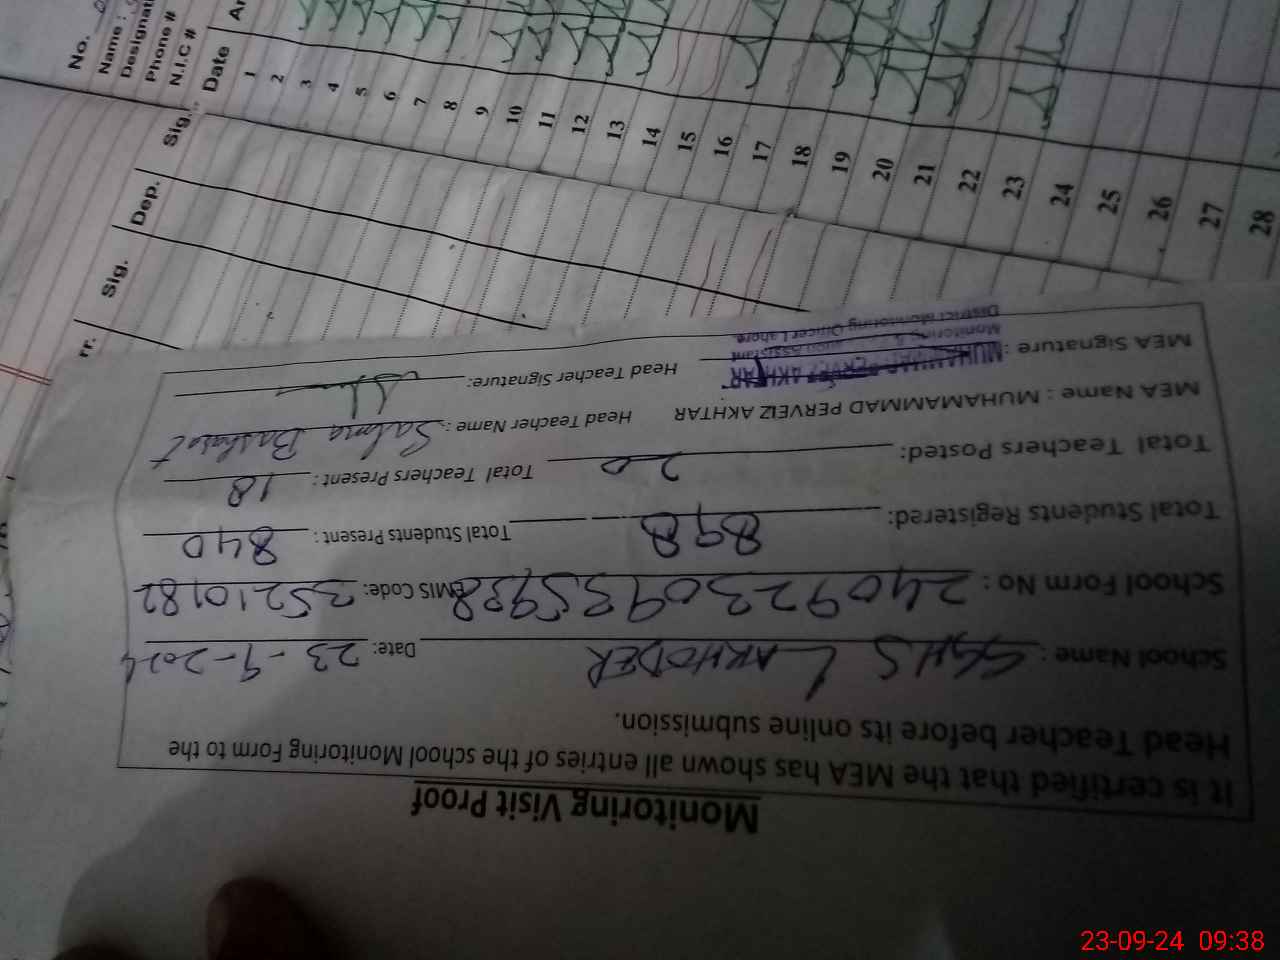 No.
Name :
Phone #
N.I.C #
Date
1
2
3
4
5
6
7
8
9
10
11
12
13
14
15
16
17
18
19
20
21
22
23
24
25
26
27
28
Sig.
Dep.
Sig.
rr.
Monitoring Visit Proof
It is certified that the MEA has shown all entries of the school Monitoring Form to the
Head Teacher before its online submission.
School Name : GGHS LAKHODER Date: 23-9-2024
School Form No : 24092309355938 EMIS Code: 35210182
Total Students Registered: 898 Total Students Present : 840
Total Teachers Posted: 20 Total Teachers Present : 18
MEA Name : MUHAMMAD PERVEIZ AKHTAR Head Teacher Name : Salma Basharat
MEA Signature : Head Teacher Signature:
MUHAMMAD PERVEZ AKHTAR
Monitoring & Assistant
District Monitoring Officer Lahore
23-09-24 09:38